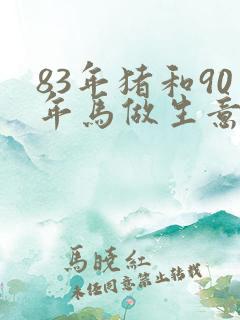 83年猪和90
年馬做生意
馬曉紅
未任同意禁止转载